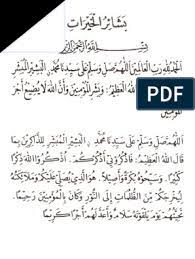 بَشَائِرُ الْخَيْرَاتِ
بِسْمِ اللهِ الرَّحْمٰنِ الرَّحِيْمِ
الْحَمْدُ لِلّٰهِ رَبِّ الْعَالَمِيْنَ اَللّٰهُمَّ صَلِّ وَسَلِّمْ عَلَى سَيِّدِنَا مُحَمَّدٍ الْبَشِيْرِ الْمُبَشِّرِ
اللهُ الْعَظِيْمُ وَبَشِّرِ الْمُؤْمِنِيْنَ وَأَنَّ اللهَ لَا يُضِيْعُ أَجْرَ
الْمُؤْمِنِيْنَ
اَللّٰهُمَّ صَلِّ وَسَلِّمْ عَلَى سَيِّدِنَا مُحَمَّدٍ الْبَشِيْرِ الْمُبَشِّرِ لِلذَّاكِرِيْنَ بِمَا
قَالَ اللهُ الْعَظِيْمُ فَاذْكُرُوْنِيْ أَذْكُرْكُمْ اُذْكُرُوا اللهَ ذِكْرًا
كَثِيْرًا وَسَبِّحُوْهُ بُكْرَةً وَأَصِيْلًا هُوَ الَّذِيْ يُصَلِّيْ عَلَيْكُمْ وَمَلَائِكَتُهُ
لِيُخْرِجَكُمْ مِنَ الظُّلُمَاتِ إِلَى النُّوْرِ وَكَانَ بِالْمُؤْمِنِيْنَ رَحِيْمًا
تَحِيَّتُهُمْ يَوْمَ يَلْقَوْنَهُ سَلَامٌ وَأَعَدَّ لَهُمْ أَجْرًا كَرِيْمًا
PDF